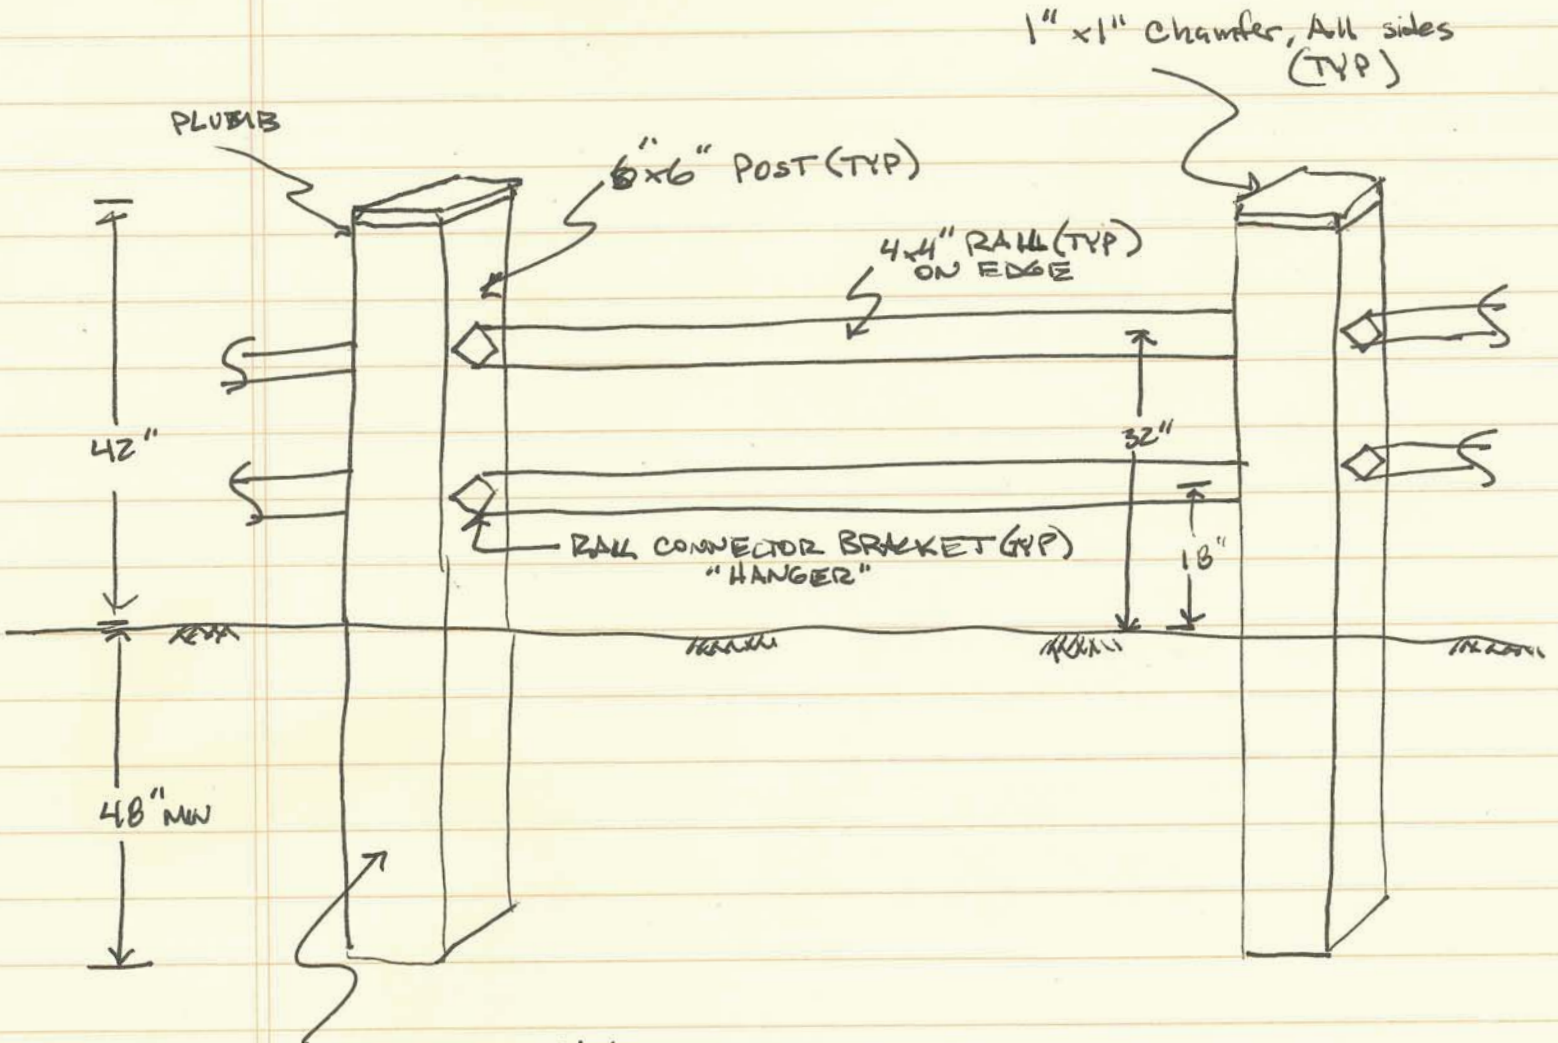 1" x1" Chamfer, All sides
(TYP)
PLUMB
6"x6" POST (TYP)
4x4" RAIL (TYP)
ON EDGE
42"
32"
18"
RAIL CONNECTOR BRACKET (TYP)
"HANGER"
48" MIN